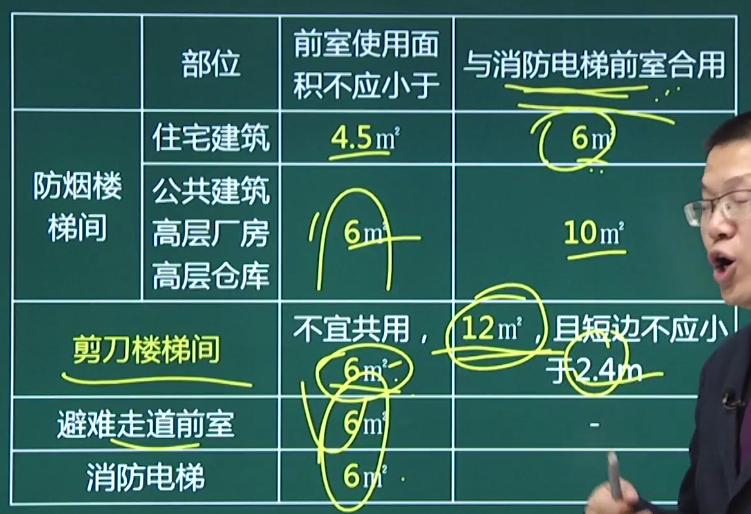 部位
前室使用面
积不应小于
与消防电梯前室合用
防烟楼
梯间
住宅建筑
4.5㎡
6㎡
公共建筑
高层厂房
高层仓库
6㎡
10㎡
剪刀楼梯间
不宜共用，
6㎡.
12㎡，且短边不应小
于2.4m
避难走道前室
6㎡
-
消防电梯
6㎡